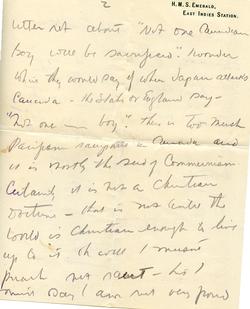 2
H.M.S. EMERALD,
EAST INDIES STATION.
utter rot about "Not one Canadian
boy will be sacrificed". I wonder
what they would say if when Japan attacks
Canada - the States or England say -
"Not one boy". There is too much
Pacifism in Canada and
it is mostly the seed of Communism
it is not a Christian
Doctrine - that is not until the
World is Christian enough to live
up to it. Oh well I mustn't
preach not
say I am not very proud